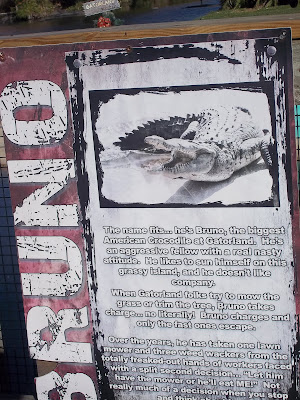 BRUNO
The name fits... he's Bruno, the biggest
American Crocodile at Gatorland. He's
an aggressive fellow with a real nasty
attitude. He likes to sun himself on this
grassy island, and he doesn't like
company.
When Gatorland folks try to mow the
grass or trim the tree, Bruno takes
charge... no literally! Bruno charges and
only the fast ones escape.
Over the years, he has taken one lawn
mower and three weed wackers from the
totally freaked-out hands of workers faced
with a split second decision. "Let him
have the mower or he'll eat ME!" Not
really much of a decision when you stop
and think